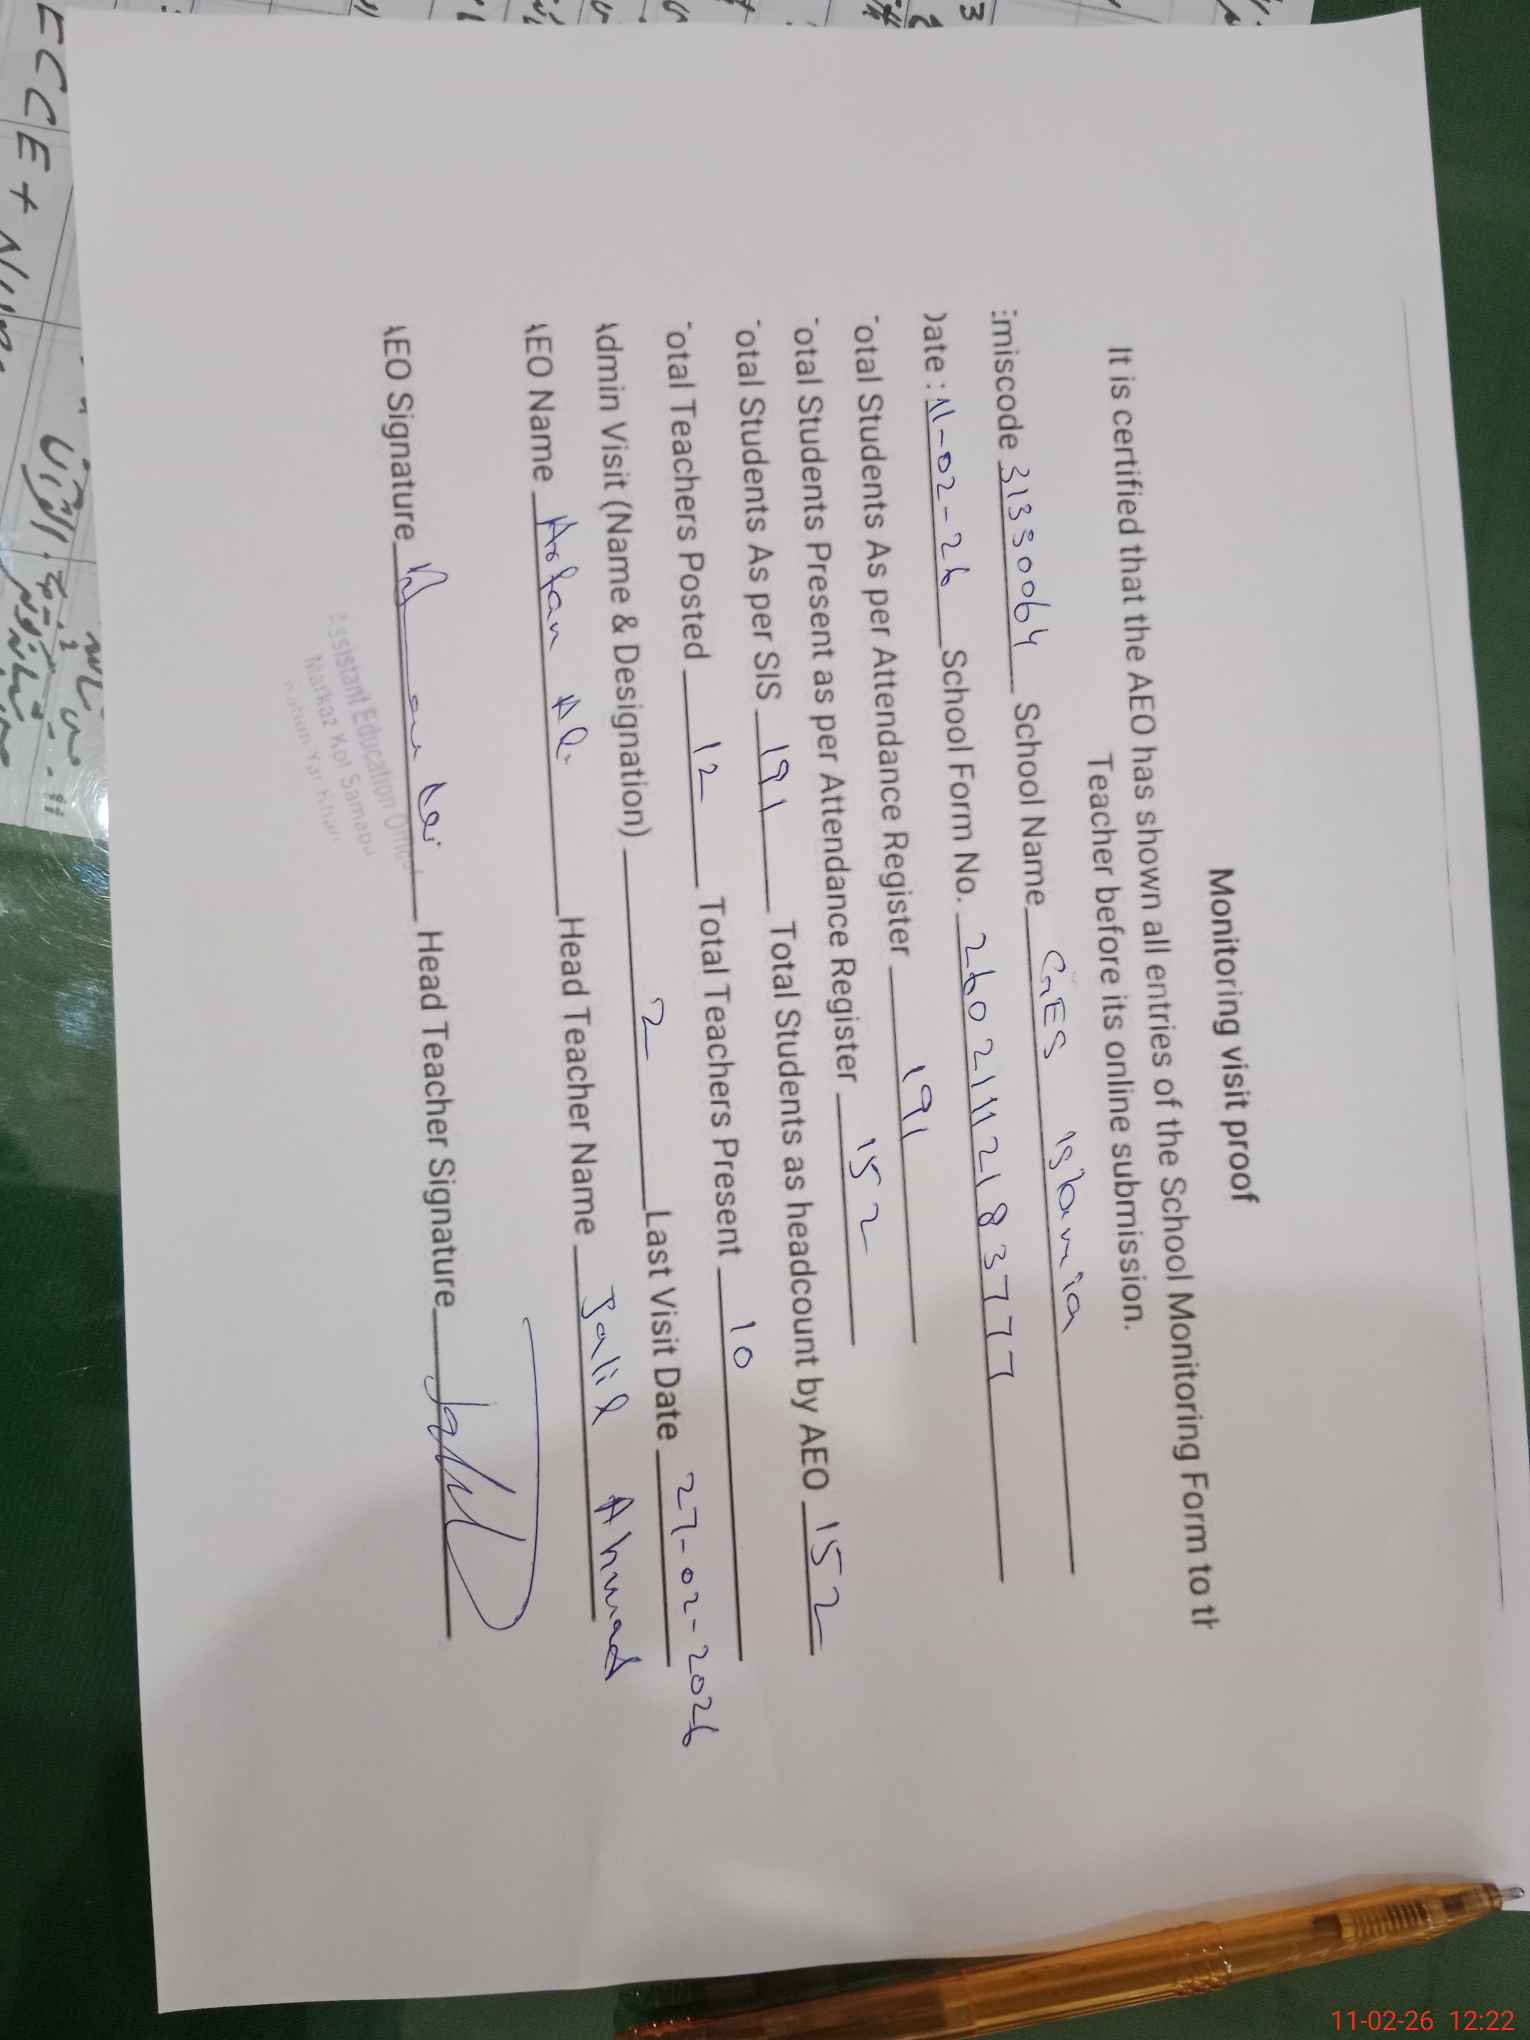 Monitoring visit proof
It is certified that the AEO has shown all entries of the School Monitoring Form to th
Teacher before its online submission.
miscode 31330064 School Name GES Islamia
Date : 11-02-26 School Form No. 26021112183777
otal Students As per Attendance Register 191
otal Students Present as per Attendance Register 152
otal Students As per SIS 191 Total Students as headcount by AEO 152
otal Teachers Posted 12 Total Teachers Present 10
Admin Visit (Name & Designation) 2 Last Visit Date 27-02-2026
AEO Name Ali Head Teacher Name Jalil Ahmad
AEO Signature Head Teacher Signature Jalil
Assistant Education Officer
Markaz Kot Samaba
Yar Khan
ECCE +
11-02-26 12:22